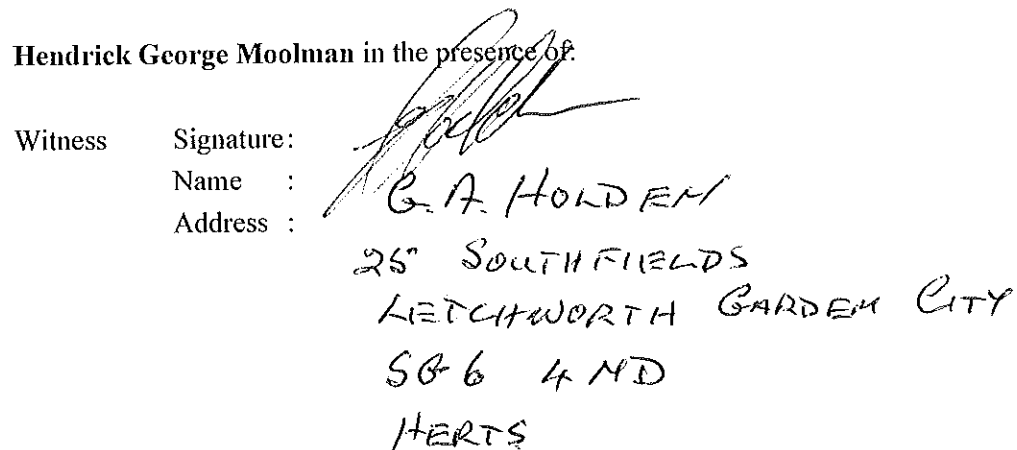 Hendrick George Moolman in the presence of:
Witness Signature:
Name : G. A. HOLDEN
Address :
25 SOUTHFIELDS
LETCHWORTH GARDEN CITY
SG6 4 ND
HERTS